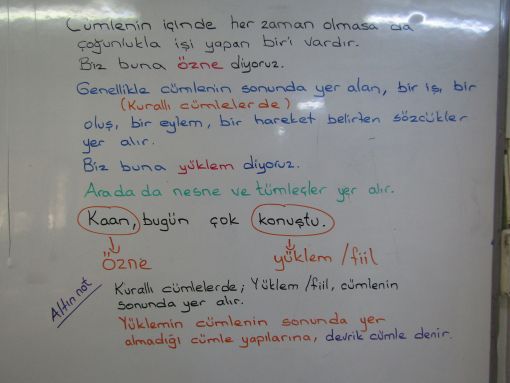 Cümlenin içinde her zaman olmasa da
çoğunlukla işi yapan bir'i vardır.
Biz buna özne diyoruz.
Genellikle cümlenin sonunda yer alan, bir iş, bir
(Kurallı cümlelerde)
oluş, bir eylem, bir hareket belirten sözcükler
yer alır.
Biz buna yüklem diyoruz.
Arada da nesne ve tümleçler yer alır.
Kaan, bugün çok konuştu.
özne yüklem/fiil
Altın not
Kurallı cümlelerde; Yüklem/fiil, cümlenin
sonunda yer alır.
Yüklemin cümlenin sonunda yer
almadığı cümle yapılarına, devrik cümle denir.